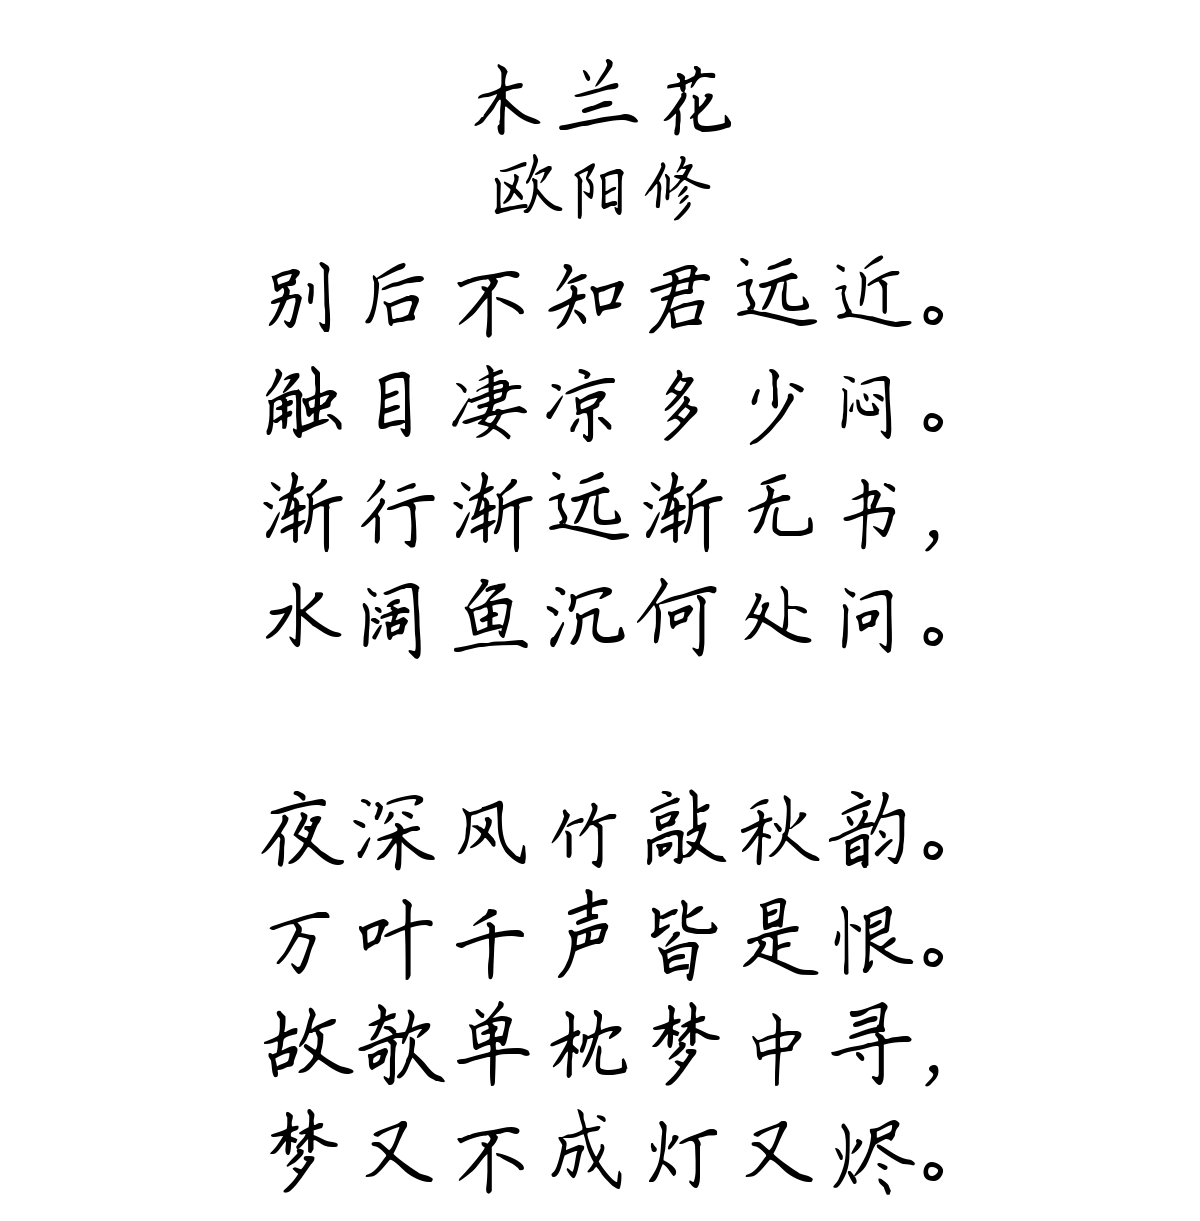 木兰花
欧阳修
别后不知君远近。
触目凄凉多少闷。
渐行渐远渐无书,
水阔鱼沉何处问。
夜深风竹敲秋韵。
万叶千声皆是恨。
故欹单枕梦中寻,
梦又不成灯又烬。